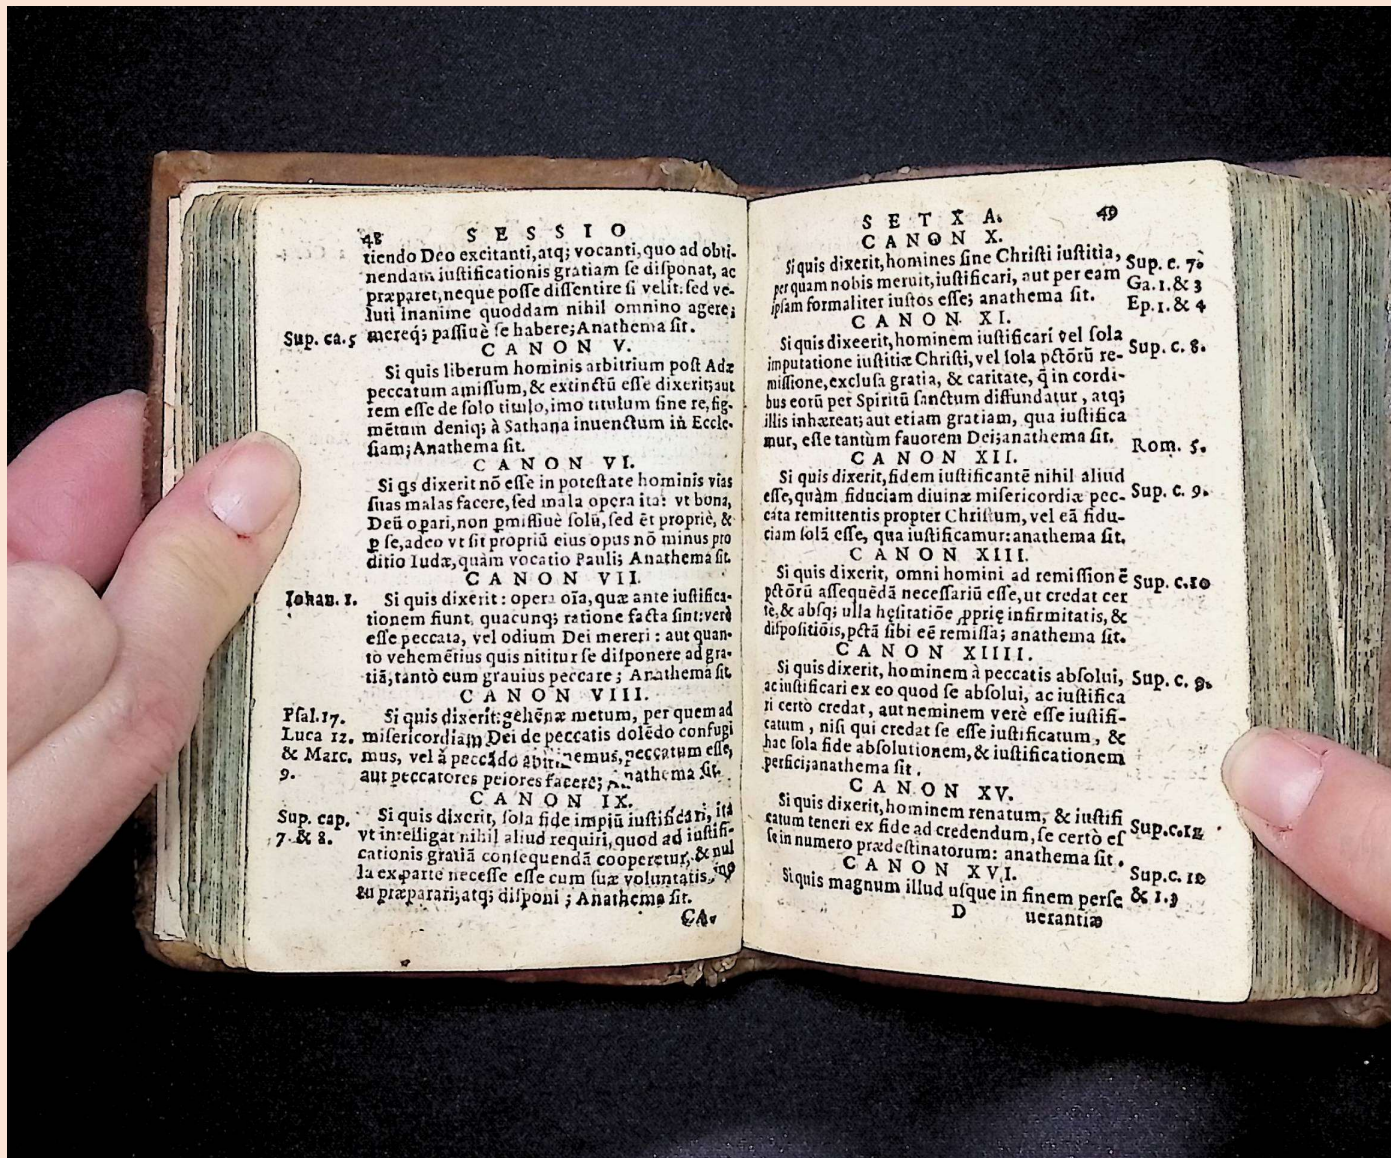 48 SESSIO
tiendo Deo excitanti, atq; vocanti, quo ad obti-
nendam iustificationis gratiam se disponat, ac
præparet, neque posse dissentire si velit: sed ve-
luti inanime quoddam nihil omnino agere;
Sup. ca. 5 mereq; passiuè se habere; Anathema sit.
CANON V.
Si quis liberum hominis arbitrium post Adæ
peccatum amissum, & extinctũ esse dixerit; aut
rem esse de solo titulo, imo titulum sine re, fig-
mẽtum deniq; à Sathana inuenctum in Eccle-
siam; Anathema sit.
CANON VI.
Si qs dixerit nõ esse in potestate hominis vias
suas malas facere, sed mala opera ita: vt bona,
Deũ opari, non ꝑmissiuè solũ, sed ẽt propriè, &
ꝑ se, adeo vt sit propriũ eius opus nõ minus pro
ditio Iudæ, quàm vocatio Pauli; Anathema sit.
CANON VII.
Iohan. 1. Si quis dixerit: opera oĩa, quæ ante iustifica-
tionem fiunt, quacunq; ratione facta sint: verè
esse peccata, vel odium Dei mereri: aut quan-
tò vehemẽtius quis nititur se disponere ad gra-
tiã, tantò eum grauius peccare; Anathema sit
CANON VIII.
Psal. 17. Si quis dixerit: gehẽnæ metum, per quem ad
Luca 12. misericordiam Dei de peccatis dolẽdo confugi
& Marc. mus, vel à peccãdo abstinemus, peccatum esse,
9. aut peccatores peiores facere; Anathema sit.
CANON IX.
Sup. cap. Si quis dixerit, sola fide impiũ iustificari, ita
7. & 8. vt intelligat nihil aliud requiri, quod ad iustifi-
cationis gratiã consequendã cooperetur, & nul
la ex parte necesse esse eum suæ voluntatis
præparari, atq; disponi; Anathema sit.
CA-
SETXA. 49
CANON X.
Si quis dixerit, homines sine Christi iustitia, Sup. c. 7.
per quam nobis meruit, iustificari, aut per eam Ga. 1. & 3
ipsam formaliter iustos esse; anathema sit. Ep. 1. & 4
CANON XI.
Si quis dixeerit, hominem iustificari vel sola
imputatione iustitiæ Christi, vel sola pctõrũ re- Sup. c. 8.
missione, exclusa gratia, & caritate, q̃ in cordi-
bus eorũ per Spiritũ sanctum diffundatur, atq;
illis inhæreat; aut etiam gratiam, qua iustifica
mur, esse tantùm fauorem Dei; anathema sit. Rom. 5.
CANON XII.
Si quis dixerit, fidem iustificantẽ nihil aliud
esse, quàm fiduciam diuinæ misericordiæ pec- Sup. c. 9.
cata remittentis propter Christum, vel eã fidu-
ciam solã esse, qua iustificamur: anathema sit.
CANON XIII.
Si quis dixerit, omni homini ad remissionẽ Sup. c. 10
pctõrũ assequẽdã necessariũ esse, ut credat cer
tè, & absq; ulla hęsitatiõe ꝓprię infirmitatis, &
dispositiõis, pctã sibi eẽ remissa; anathema sit.
CANON XIIII.
Si quis dixerit, hominem à peccatis absolui, Sup. c. 9.
ac iustificari ex eo quod se absolui, ac iustifica
ri certò credat, aut neminem verè esse iustifi-
catum, nisi qui credat se esse iustificatum, &
hac sola fide absolutionem, & iustificationem
perfici; anathema sit.
CANON XV.
Si quis dixerit, hominem renatum, & iustifi
catum teneri ex fide ad credendum, se certò es Sup. c. 12
se in numero prædestinatorum: anathema sit.
CANON XVI. Sup. c. 12
Si quis magnum illud usque in finem perse & 13
D uerantiæ